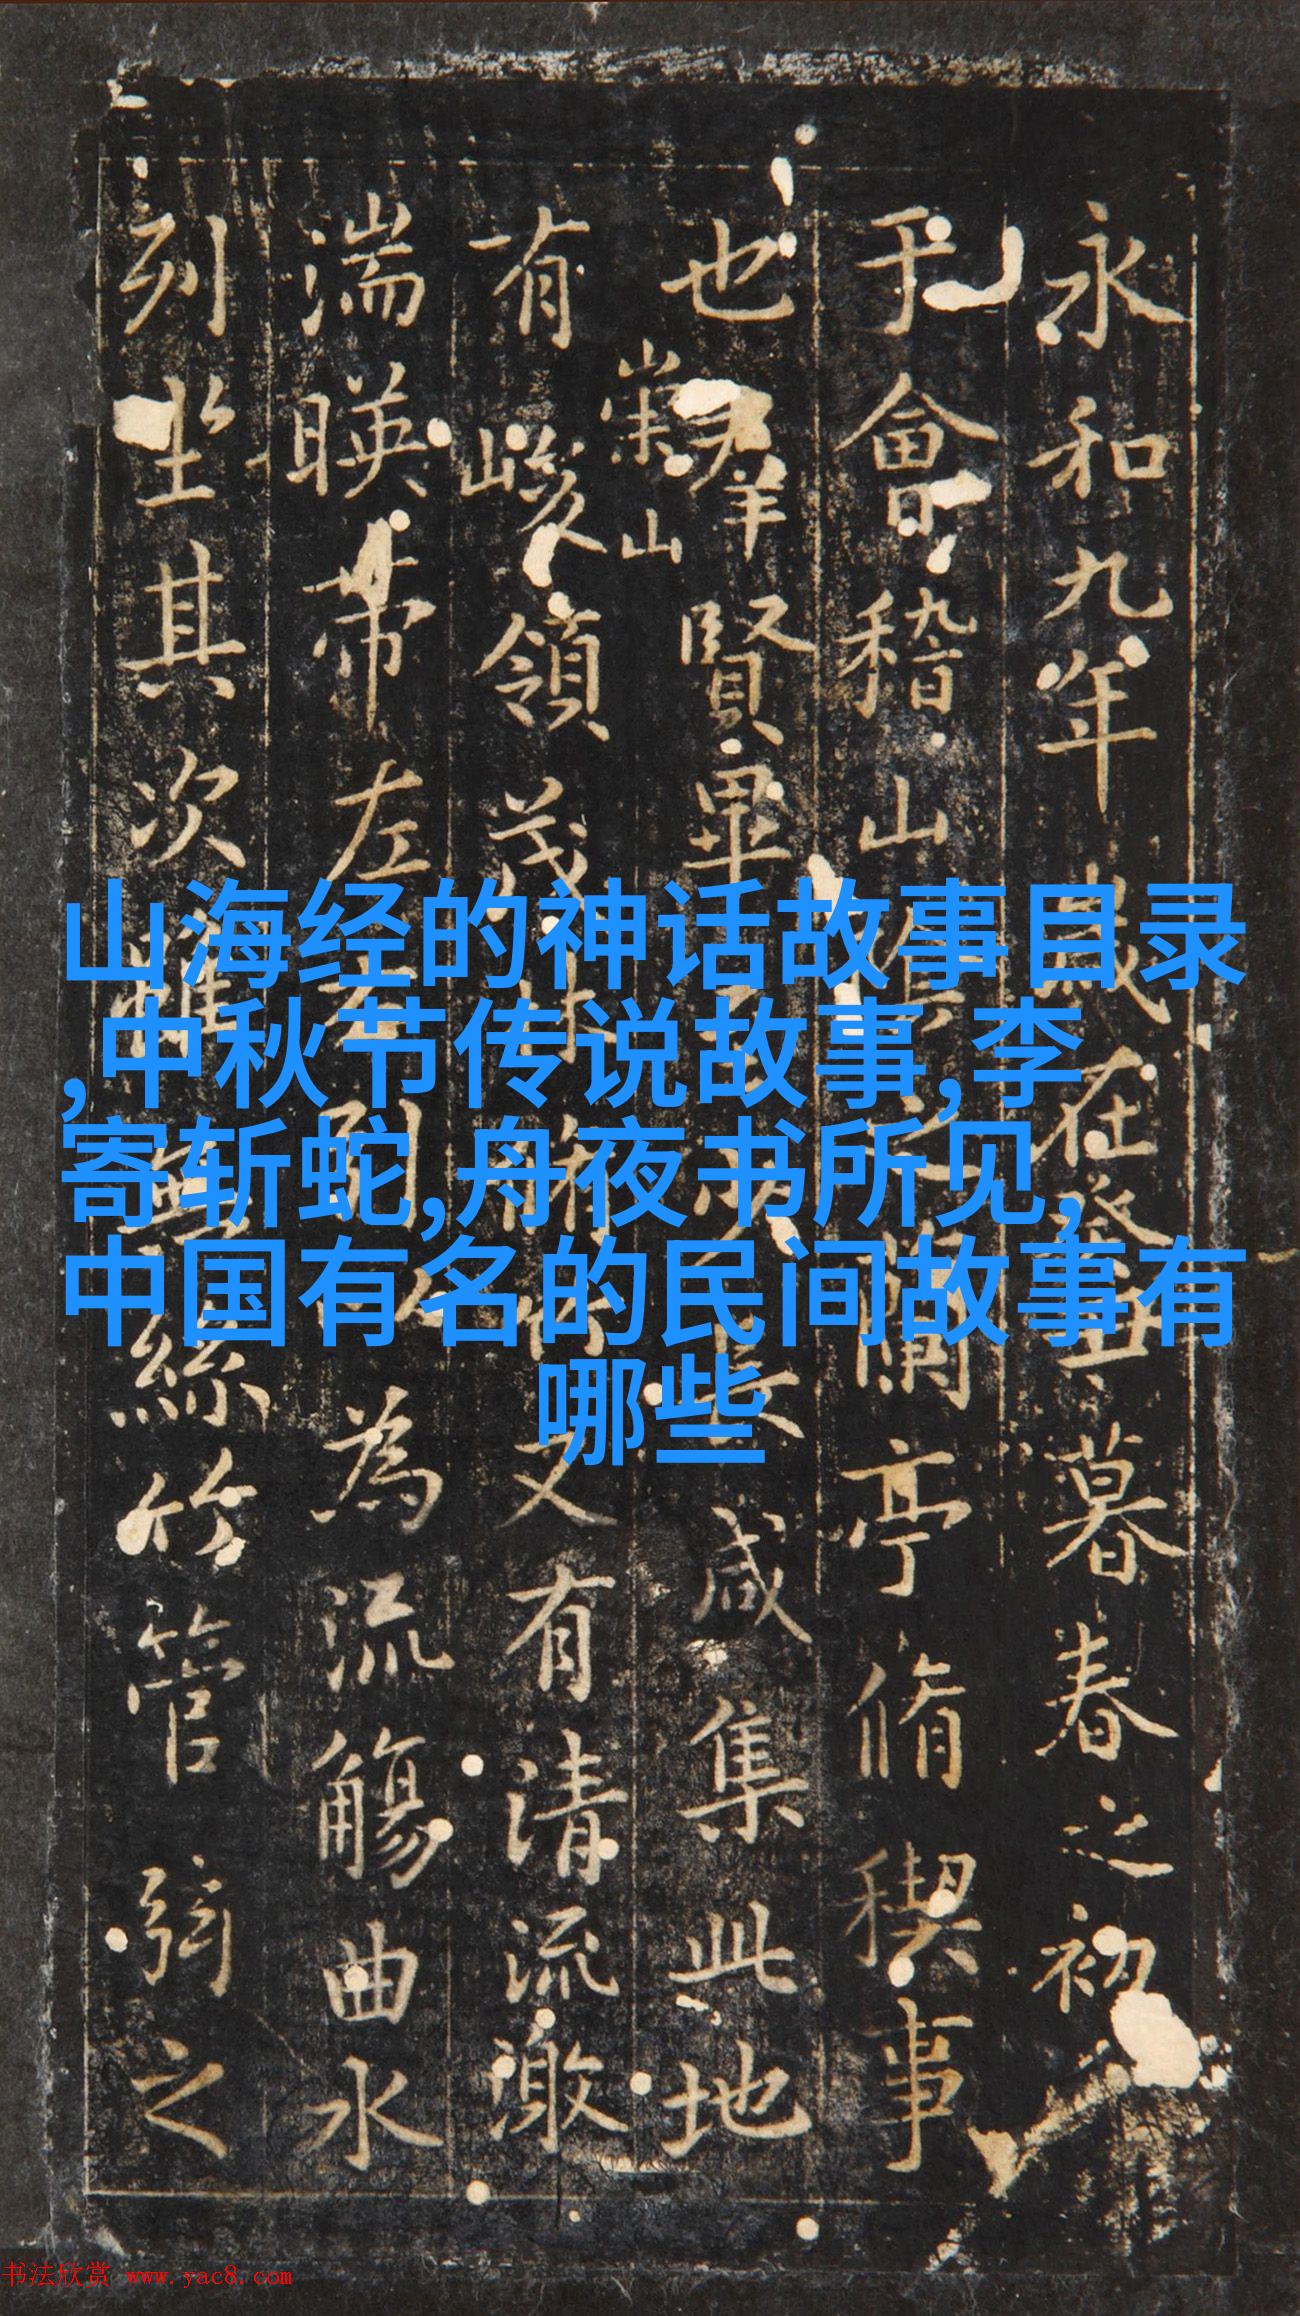 永和九年歲在癸丑暮春之初
于會稽山陰之蘭亭脩稧事
也羣賢畢至少長咸集此地
崇山
有峻領茂林脩竹又有清流激
湍暎帶左右引以為流觴曲水
列坐其次雖無絲竹管弦之
山海经的神话故事目录
,中秋节传说故事,李
寄斩蛇,舟夜书所见,
中国有名的民间故事有
哪些
书法欣赏 www.yac8.com